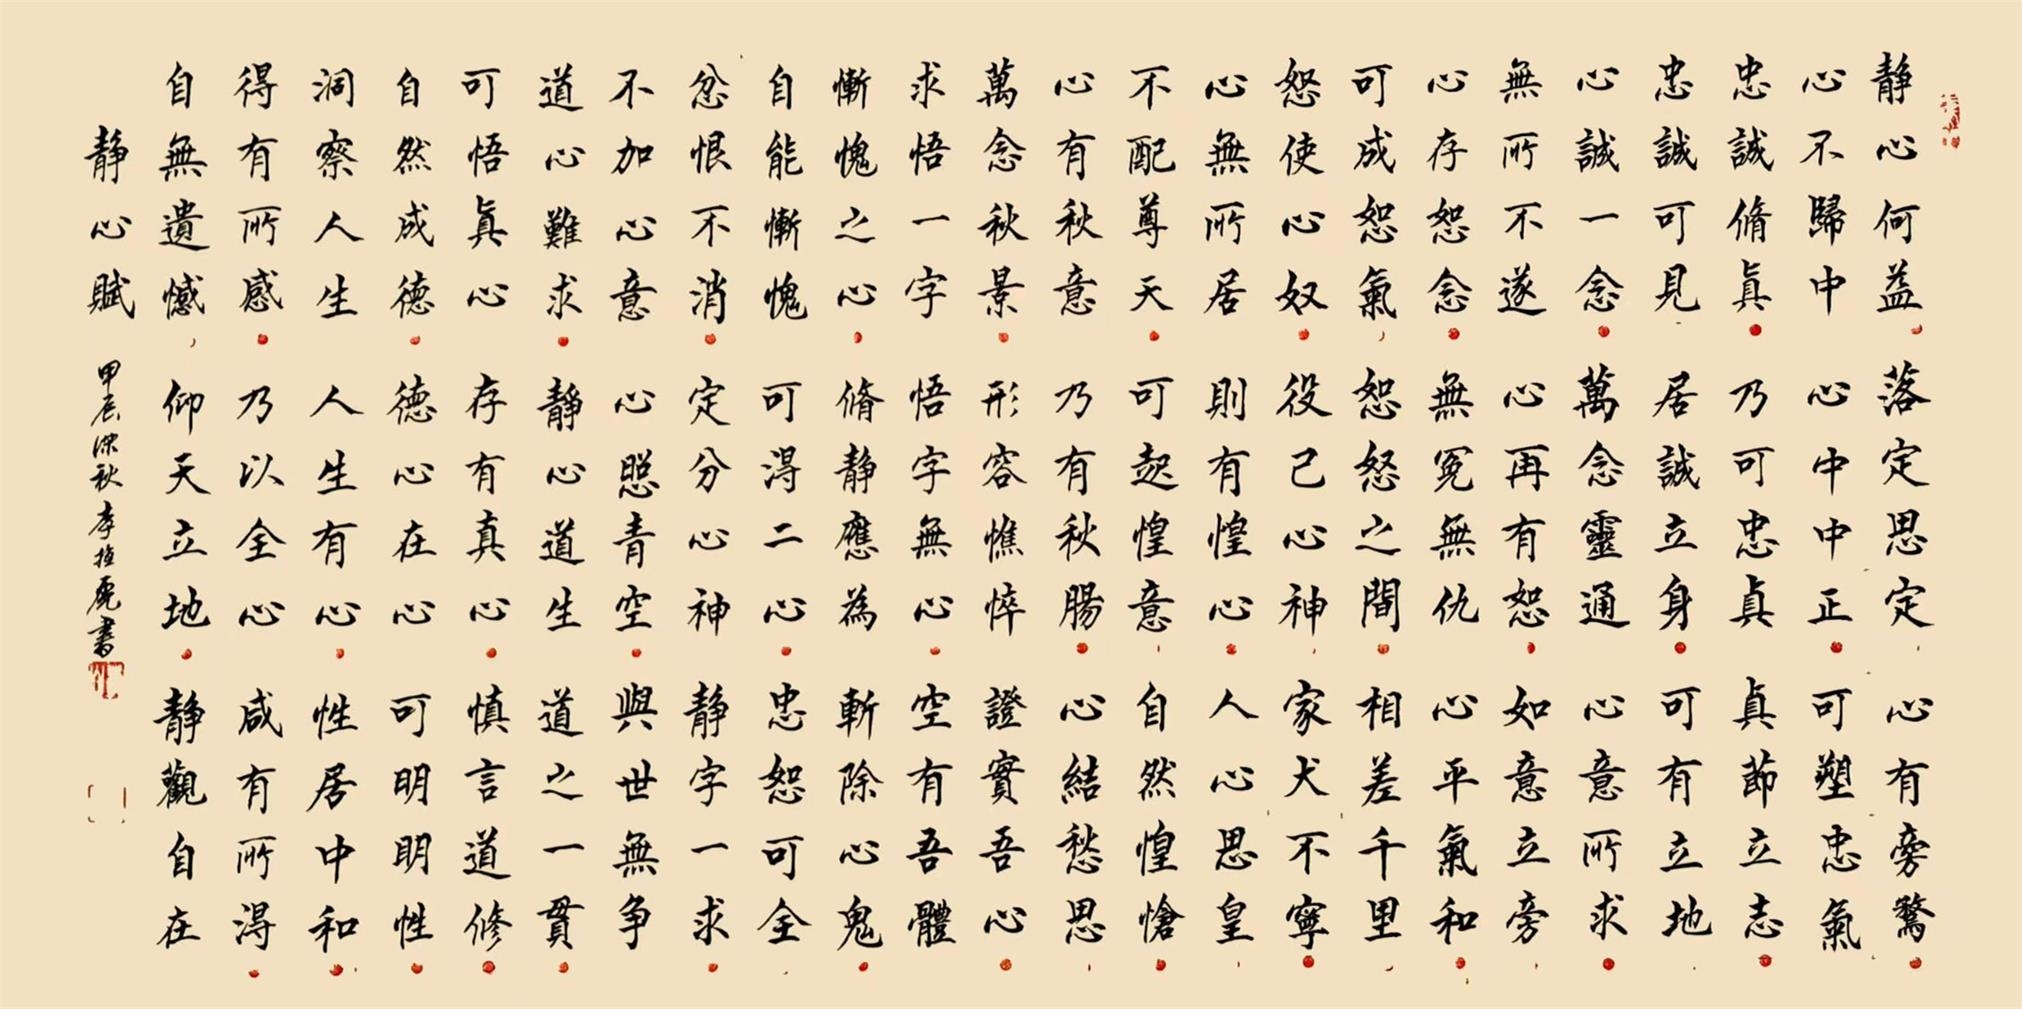 靜心何益落定思定心有旁騖
心不歸中心中中正可塑忠氣
忠誠脩真乃可忠貞真節立志
忠誠可見居誠立身可有立地
心誠一念萬念靈通心意所求
無所不遂心再有恕如意立旁
心存恕念無冤無仇心平氣和
可成恕氣恕怒之間相差千里
怒使心奴役己心神家犬不寧
心無所居則有惶心人心思皇
不配尊天可起惶意自然惶愴
心有秋意乃有秋腸心結愁思
萬念秋景形容憔悴證實吾心
求悟一字悟字無心空有吾體
慚愧之心脩靜應為斬除心鬼
自能慚愧可得二心忠恕可全
忿恨不消定分心神靜字一求
不加心意心照青空與世無爭
道心難求靜心道生道之一貫
可悟真心存有真心慎言道修
自然成德德心在心可明明性
洞察人生人生有心性居中和
得有所感乃以全心咸有所得
自無遺憾仰天立地靜觀自在
靜心賦 甲辰深秋 李 書